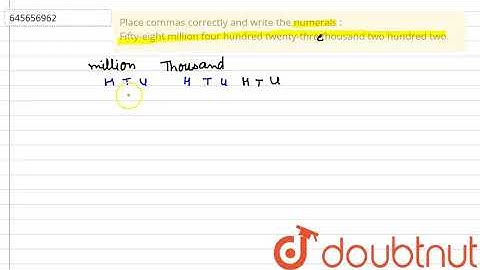 645656962
Place commas correctly and write the numerals :
Fifty-eight million four hundred twenty-three thousand two hundred two.
million Thousand
H T U H T U H T U
doubtnut